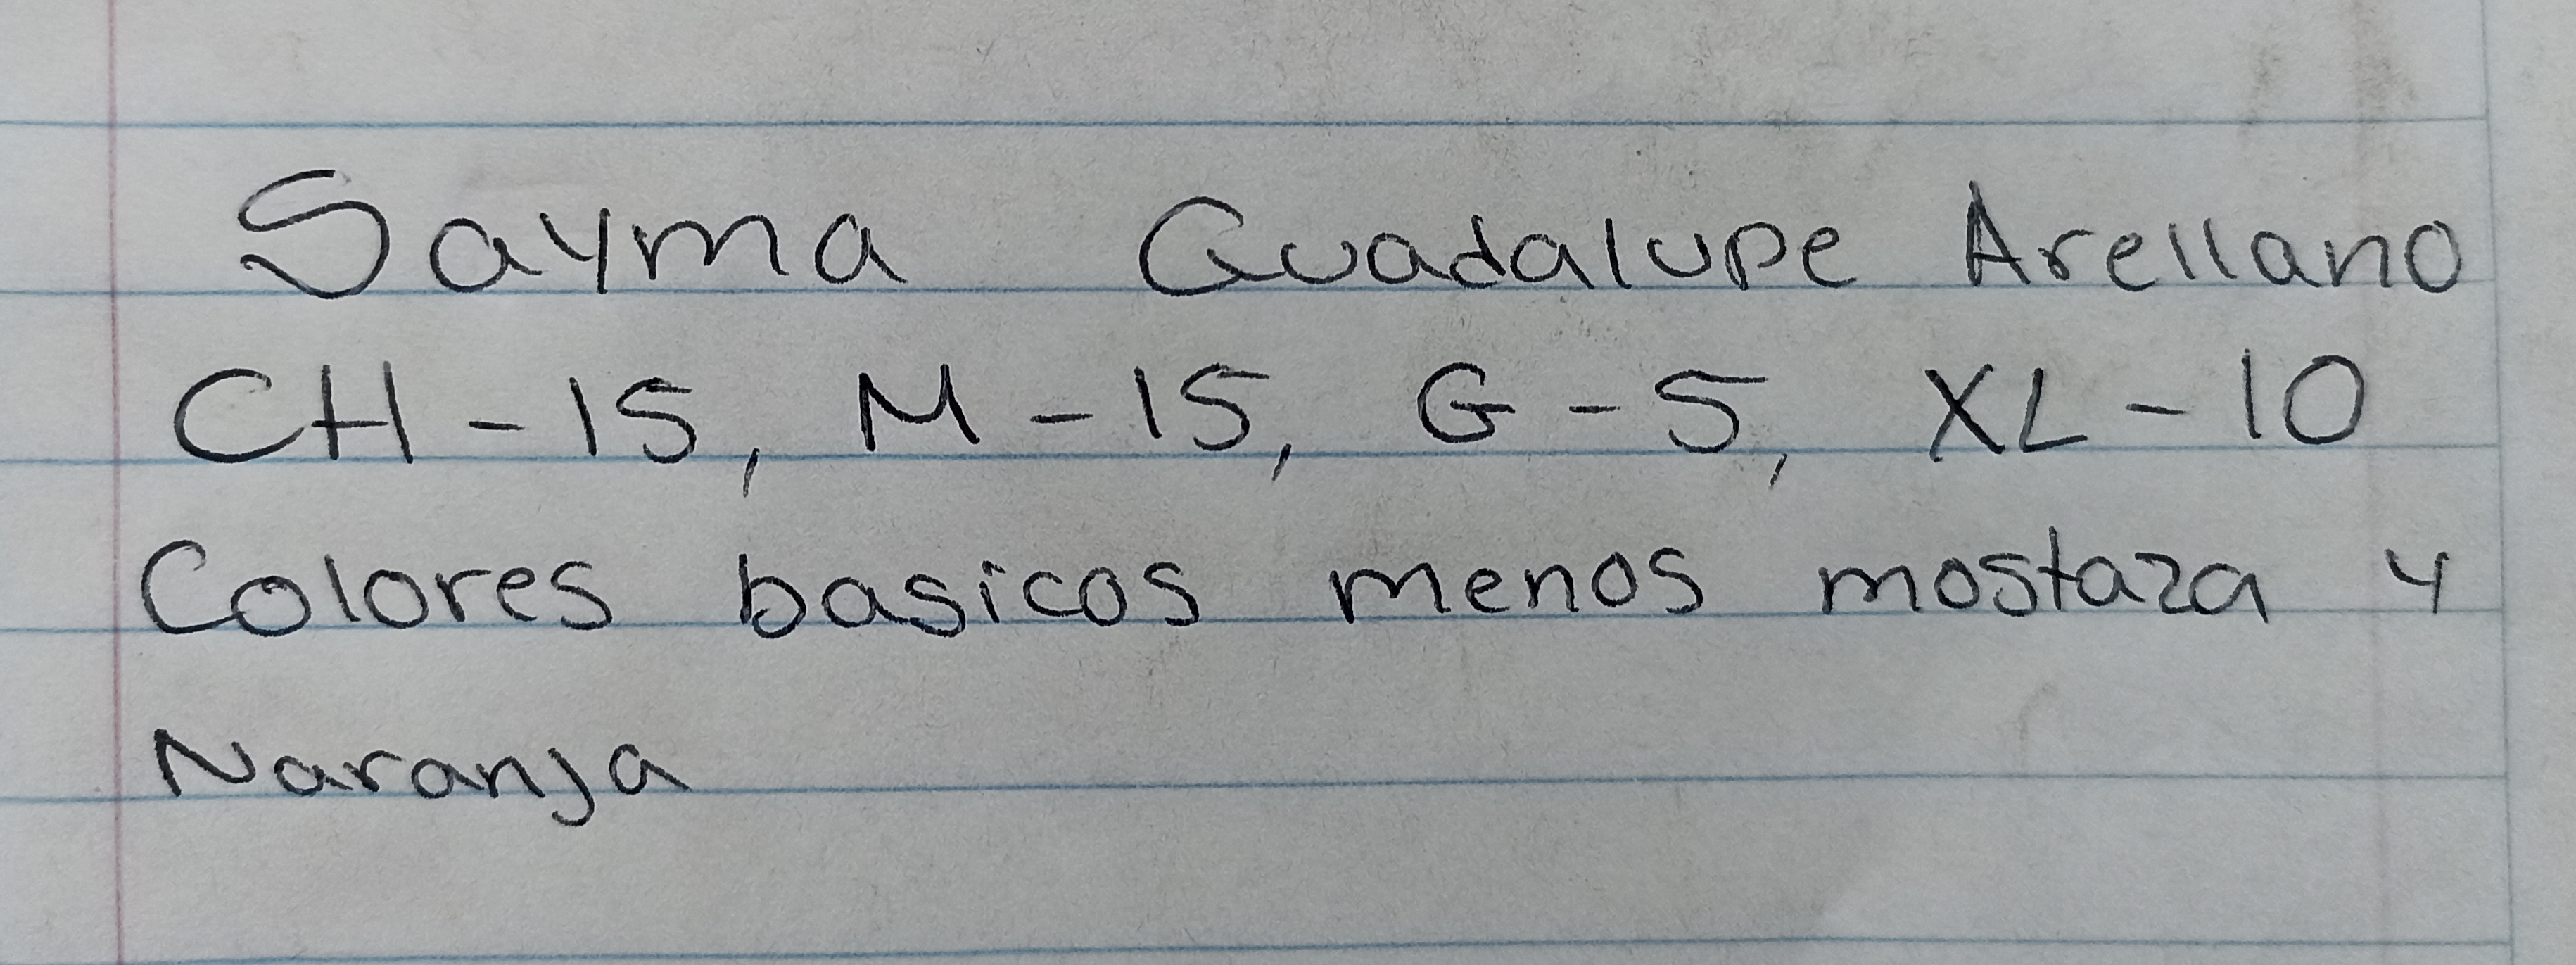 Sayma Guadalupe Arellano
CH - 15, M - 15, G - 5, XL - 10
Colores basicos menos mostaza y
Naranja